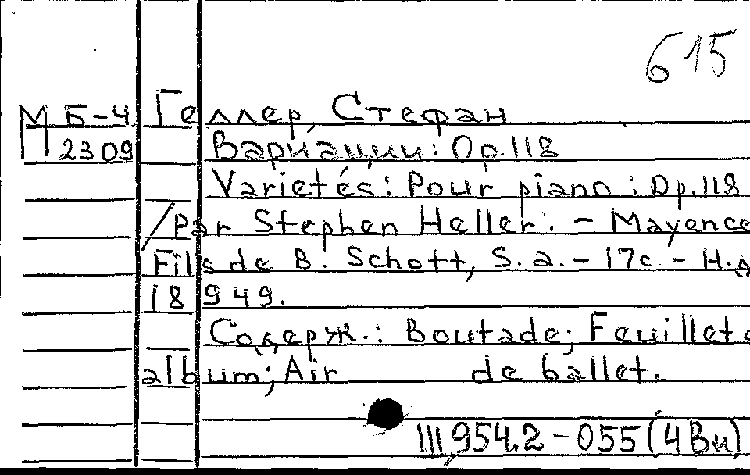 615
М Б-Ч Геллер, Стефан
П 2309 Вариации: Op.118
Varietés: Pour piano : Op.118
/Par Stephen Heller. - Mayence
Fils de B. Schott, S. a. - 17c. - Н.д
18949.
Содерж.: Boutade; Feuillet d
album; Air de ballet.
III 954.2-055(4Ви)